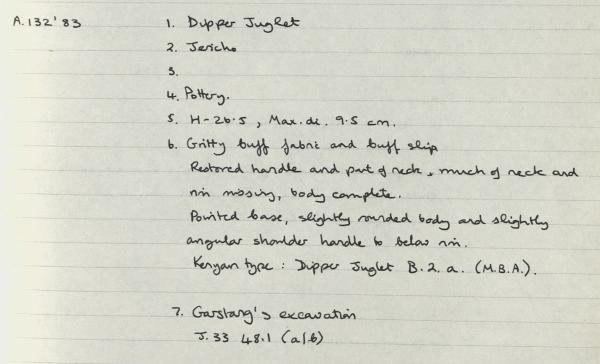 A.132'83 1. Dipper Juglet
2. Jericho
3.
4. Pottery.
5. H-26.5, Max.di. 9.5 cm.
6. Gritty buff fabric and buff slip
Restored handle and part of neck, much of neck and
rim missing, body complete.
Pointed base, slightly rounded body and slightly
angular shoulder handle to below rim.
Kenyan type: Dipper Juglet B.2.a. (M.B.A.).
7. Garstang's excavation
J.33 48.1 (a/b)